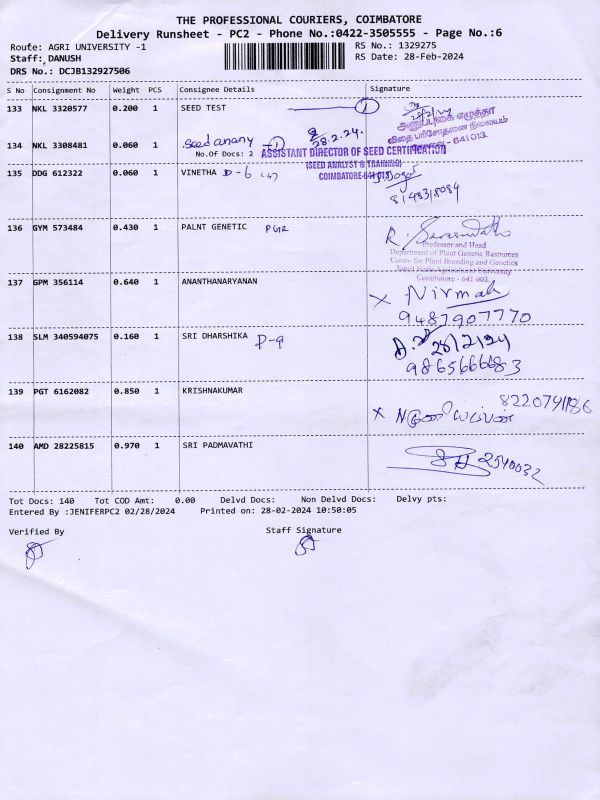 THE PROFESSIONAL COURIERS, COIMBATORE
Delivery Runsheet - PC2 - Phone No.:0422-3505555 - Page No.:6
Route: AGRI UNIVERSITY -1 RS No.: 1329275
Staff: DANUSH RS Date: 28-Feb-2024
DRS No.: DCJB132927506
S No Consignment No Weight PCS Consignee Details Signature
133 NKL 3320577 0.200 1 SEED TEST 1
அனுப்புகை எழுத்தர்
விதை பரிசோதனை நிலையம்
641 013.
134 NKL 3308481 0.060 1 28.2.24.
No.Of Docs: 2 ASSISTANT DIRECTOR OF SEED CERTIFICATION
(SEED ANALYST & TRAINING)
COIMBATORE-641 013
135 DDG 612322 0.060 1 VINETHA D-6 (4)
136 GYM 573484 0.430 1 PALNT GENETIC PGR
Professor and Head
Department of Plant Genetic Resources
Centre for Plant Breeding and Genetics
Tamil Nadu Agricultural University
Coimbatore - 641 003.
137 GPM 356114 0.640 1 ANANTHANARYANAN
x Nirmala
9487907770
138 SLM 340594075 0.160 1 SRI DHARSHIKA D-9 28/2/24
9865666683
139 PGT 6162082 0.850 1 KRISHNAKUMAR
x
140 AMD 28225815 0.970 1 SRI PADMAVATHI
2540032
Tot Docs: 140 Tot COD Amt: 0.00 Delvd Docs: Non Delvd Docs: Delvy pts:
Entered By :JENIFERPC2 02/28/2024 Printed on: 28-02-2024 10:50:05
Verified By Staff Signature